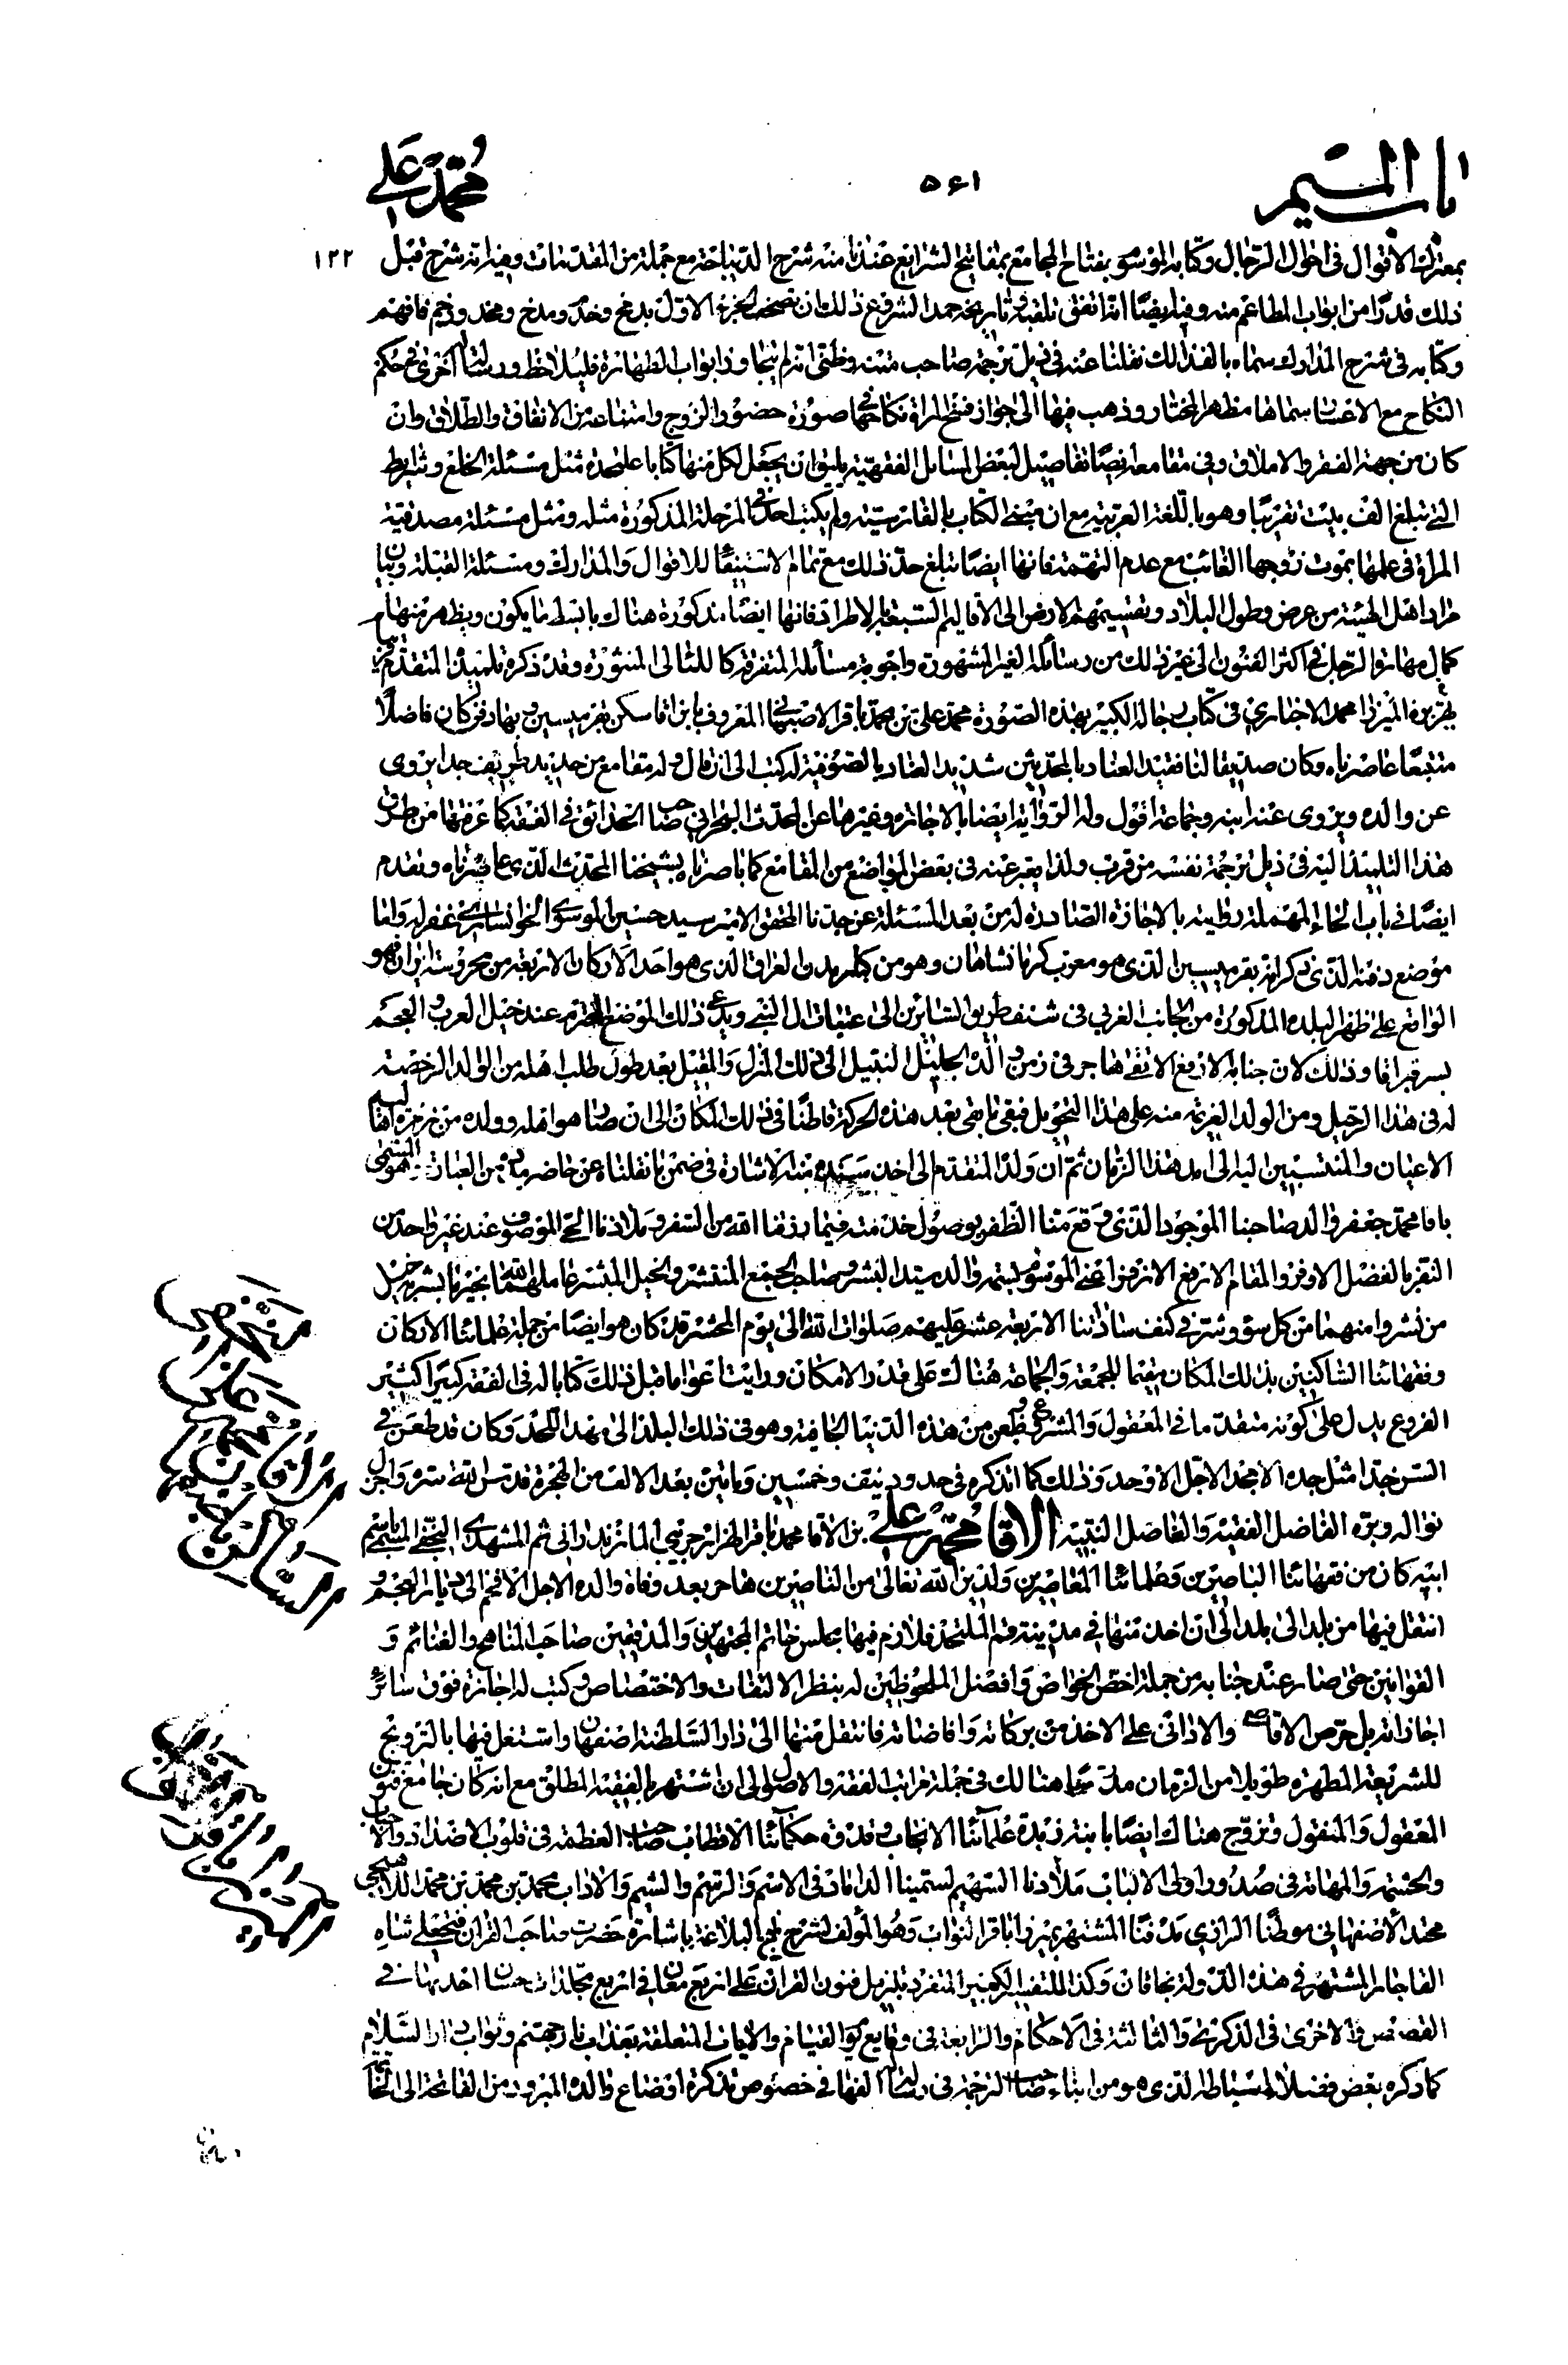 باب الميم
٥٦١
محمد علي
١٢٢
بمعترك الاقوال فى احوال الرجال وكتابه الموسوم بمفتاح المجامع بمفاتيح الشرايع عندنا منه شرح الديباجة مع جملة من المقدمات وعبارته شرح قبل
ذلك قدرا من ابواب المطاعم منه وفيه ايضا انه اتفق تاريخه حمد الشرع ذلك ان الجزء الاول
وكتابه فى شرح المدارك سماه بالفذالك نقلنا عنه فى ذيل ترجمة صاحب متنه وظنى انه لم يتجاوز ابواب الطهارة فليلاحظ ورسالة اخرى فى حكم
النكاح مع الاعسار سماها مظهر المختار وذهب فيها الى جواز فسخ المراة نكاحها فى صورة حضور الزوج وامتناعه من الانفاق والطلاق وان
كان من جهة الفقر والاملاق وفى مقامعه ايضا تفاصيل لبعض المسائل الفقهية يليق ان يجعل لكل منها كتابا على حدة مثل مسئلة الخلع وشرايط
التى تبلغ الف بيت تقريبا وهو باللغة العربية مع ان مبنى الكتاب بالفارسية ولم يكتب احد فى المرحلة المذكورة مثله ومثل مسئلة مصدقية
المراة فى علمها بموت زوجها الغائب مع عدم التهمة فانها ايضا تبلغ حد ذلك مع تمام الاستيفاء للاقوال والمدارك ومسئلة القبلة وبيان
مراد اهل الهيئة من عرض وطول البلاد وتقسيمهم الارض الى الاقاليم السبعة بالاطراد فانها ايضا مذكورة هناك بابسط ما يكون ويظهر منها
كمال مهارة الرجل فى اكثر الفنون الى غير ذلك من رسائله الغير المشهورة واجوبة مسائله المتفرقة كاللئالى المنثورة وقد ذكره تلميذه المتقدم
الميرزا محمد الاخبارى فى كتاب رجاله الكبير بهذه الصورة محمد على بن محمد باقر الاصبهانى المعروف بابن اقا سكن بقرميسين وبها دفن كان فاضلا
متتبعا عاصرناه وكان صديقا لنا فقيد العناد بالمحدثين شديد العناد بالصوفية له كتب الى ان قال وله مقامع من حديد طريف جدا يروى
عن والده ويروى عنه ابنه وجماعة اقول وله الرواية ايضا بالاجازة وغيرها عن المحدث البحرانى صاحب الحدائق فى الفقه كما عرفتها من طرق
هذا التلميذ اليه فى ذيل ترجمة نفسه من قريب ولذا يعبر عنه فى بعض المواضع من المقامع كما بصرناه بشيخنا المحدث الذى عاصرناه وتقدم
ايضا فى باب الحاء المهملة روايته بالاجازة الصادرة له من بعد المسئلة عن جدنا المحقق الامير سيد حسين الموسوى الخوانسارى غفر له واما
موضع دفنه الذى ذكر انه بقرميسين الذى هو معرب كرمانشاهان وهو من كبار بلدان العراق الذى هو احد الاركان الاربعة من محروسة ايران فهو
الواقع على ظهر البلدة المذكورة من الجانب الغربى فى شنف طريق السائرين الى عتبات ال النبى ويدعى ذلك الموضع المحترم عند خيل العرب والعجم
بسر قبر اقا وذلك لان جنابه الارفع الاتقى هاجر فى زمن والده الجليل النبيل الى ذلك المنزل والمقيل بعد طول طلب اهله من الوالد الرخصة
له فى هذا الرحيل ومن الولد العزيمة منه على هذا التحويل فبقى ما بقى بعد هذه الحركة قاطنا فى ذلك المكان الى ان صار هو اهله وولده من خيرة اهاليه
الاعيان والمنتسبين اليه الى امد هذا الزمان ثم ان ولده المتقدم الى اخذ سنده منه الاشارة فى ضمن ما نقلناه عن حاضر من العبارة هو المسمى
باقا محمد جعفر والد صاحبنا الموجود الذى وقع منا الظفر بوصول خدمته فيما رزقنا الله من السفر وملاذنا الحى الموصوف عند غير واحد من
النقر بالفضل الاوفر والمقام الارفع الازهر اعنى الموسوم والد سيد البشر وصاحب الجمع المنتشر والخيل المبتشر عاملهما الله بخير ما بشر به خيل
من نشر وامنهما من كل سوء وشر فى كنف ساداتنا الاربعة عشر عليهم صلوات الله الى يوم المحشر قد كان هو ايضا من جملة علمائنا الاركان
وفقهائنا الساكنين بذلك المكان مقيما للجمعة والجماعة هنالك على قدر الامكان ورايت اعواما قبل ذلك كتابا له فى الفقه كبيرا كثير
الفروع يدل على كونه متقدما فى المعقول والمشروع وظعن من هذه الدنيا الجافية وهو فى ذلك البلد الى مهد اللحد وكان قد طعن فى
السن جدا مثل جده الامجد الاجل الاوحد وذلك كما اذكره فى حدود نيف وخمسين ومايتين بعد الالف من الهجرة قدس الله سره واجزل
نواله وبره الفاضل الفقيه والفاصل النبيه الاقا محمد على بن الاقا محمد باقر الهزارجريبى المازندرانى ثم المشهدى النجفى المباسم باسم
ابيه كان من فقهائنا الباصرين وعلمائنا المعاصرين ولدين الله تعالى من الناصرين هاجر بعد وفاة والده الاجل الافخم الى ديار العجم و
انتقل فيها من بلد الى بلد الى ان اخذ منها فى مدينة قم الملتحد فلازم فيها مجلس خاتم المجتهدين والمدققين صاحب المناهج والغنائم و
القوانين حتى صار عند جنابه من جملة اخص الخواص وافضل الملحوظين له بنظر الالتفات والاختصاص وكتب له اجازة فوق سائر
اجازاته بل حرص الاقاصى والادانى على الاخذ من بركاته وافاضاته فانتقل منها الى دار السلطنة اصفهان واشتغل فيها بالترويج
للشريعة المطهرة طويلا من الزمان مدرسا هنالك فى جملة مراتب الفقه والاصول الى ان اشتهر بالفقيه المطلق مع انه كان جامع فنون
المعقول والمنقول وتزوج هناك ايضا بابنة زبدة علمائنا الانجاب وقدوة حكمائنا الاقطاب صاحب العظمة فى قلوب الاضداد والاحباب
والحشمة والمهابة فى صدور اولى الالباب ملاذنا السهيم لسمينا الداماد فى الاسم والرسم والشيم والاداب محمد بن محمد بن محمد اللاهيجى
محتدا الاصفهانى موطنا الرازى مدفنا المشتهر بميرزا باقر النواب وهو المؤلف لشرح نهج البلاغة باشارة حضرت صاحب القران فتحعلى شاه
القاجار المشتهر فى هذه الدولة بخاقان وكذا للتفسير الكبير المتفرد بتنزيل فنون القران على اربع معان فى اربع مجلدات حسان احديها فى
القصص والاخرى فى التذكرة والثالثة فى الاحكام والرابعة فى وقايع يوم القيام والايات المتعلقة بعذاب نار جهنم وثواب دار السلام
كما ذكره بعض فضلاء اسباطه الذى هو من ابناء صاحب الترجمة فى رسالة الفها فى خصوص تذكرة اوضاع والده المبرور من الفاتحة الى الخاتمة